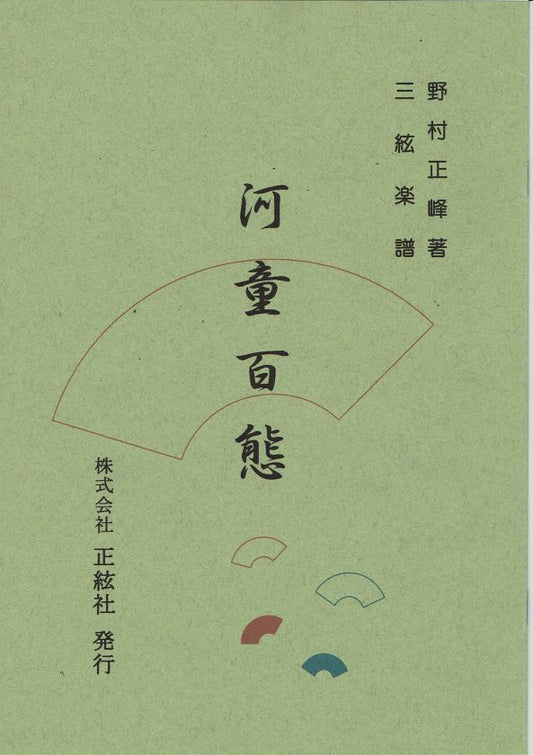 野村正峰著
三絃楽譜
河童百態
株式会社 正絃社 発行